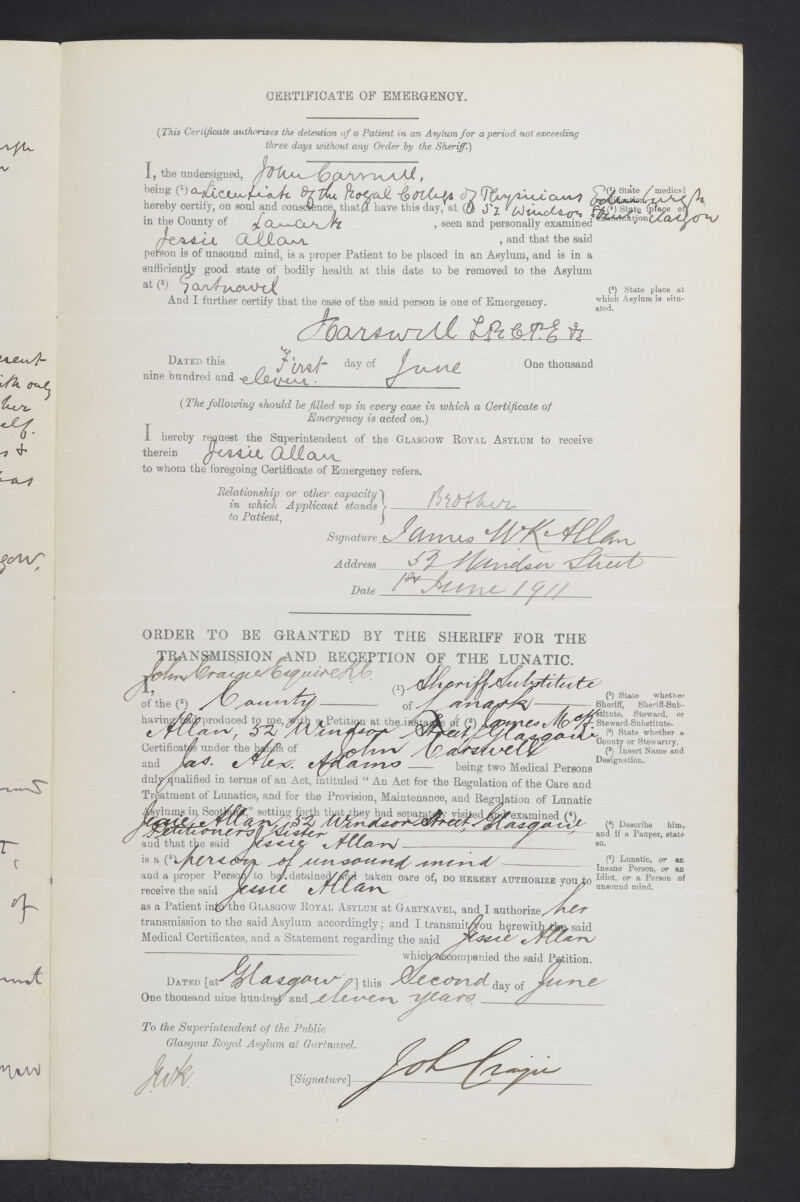 CERTIFICATE OF EMERGENCY.
(This Certificate authorizes the detention of a Patient in an Asylum for a period not exceeding
three days without any Order by the Sheriff.)
I, the undersigned, John Carswell,
being (1) a Licentiate of the Royal College of Physicians Edinburgh
(1) State medical
hereby certify, on soul and conscience, that I have this day, at (2) 52 Windsor Street Glasgow
(2) State place of
examination.
in the County of Lanark, seen and personally examined
Jessie Allan, and that the said
person is of unsound mind, is a proper Patient to be placed in an Asylum, and is in a
sufficiently good state of bodily health at this date to be removed to the Asylum
at (3) Gartnavel
(3) State place at
which Asylum is situ-
ated.
And I further certify that the case of the said person is one of Emergency.
JCarswell L.R.C.P.E &c
DATED this First day of June One thousand
nine hundred and eleven.
(The following should be filled up in every case in which a Certificate of
Emergency is acted on.)
I hereby request the Superintendent of the GLASGOW ROYAL ASYLUM to receive
therein Jessie Allan
to whom the foregoing Certificate of Emergency refers.
Relationship or other capacity
in which Applicant stands
to Patient,
Brother
Signature James McK Allan
Address 52 Windsor Street
Date 1st June 1911
ORDER TO BE GRANTED BY THE SHERIFF FOR THE
TRANSMISSION AND RECEPTION OF THE LUNATIC.
John Craigie Esquire K.C.
I, (1) Sheriff Substitute
of the (2) County of Lanark
(1) State whether
Sheriff, Sheriff-Sub-
stitute, Steward, or
Steward-Substitute.
having had produced to me, with a Petition at the instance of (3) James McK.
Allan, 52 Windsor Street, Glasgow
(2) State whether a
County or Stewartry.
Certificates under the hands of John Carswell
(3) Insert Name and
Designation.
and Jas. Alex. Adams being two Medical Persons
duly qualified in terms of an Act, intituled "An Act for the Regulation of the Care and
Treatment of Lunatics, and for the Provision, Maintenance, and Regulation of Lunatic
Asylums in Scotland," setting forth that they had separately visited and examined (4)
Jessie Allan, 52 Windsor Street, Glasgow,
Petitioners Sister
(4) Describe him,
and if a Pauper, state
so.
and that the said Jessie Allan
is a (5) person of unsound mind
(5) Lunatic, or an
Insane Person, or an
Idiot, or a Person of
unsound mind.
and a proper Person to be detained and taken care of, DO HEREBY AUTHORIZE you to
receive the said Jessie Allan
as a Patient into the GLASGOW ROYAL ASYLUM AT GARTNAVEL, and I authorize her
transmission to the said Asylum accordingly; and I transmit you herewith the said
Medical Certificates, and a Statement regarding the said Jessie Allan
which accompanied the said Petition.
DATED [at Glasgow ] this Second day of June
One thousand nine hundred and eleven years.
To the Superintendent of the Public
Glasgow Royal Asylum at Gartnavel.
[Signature] Joh Craigie